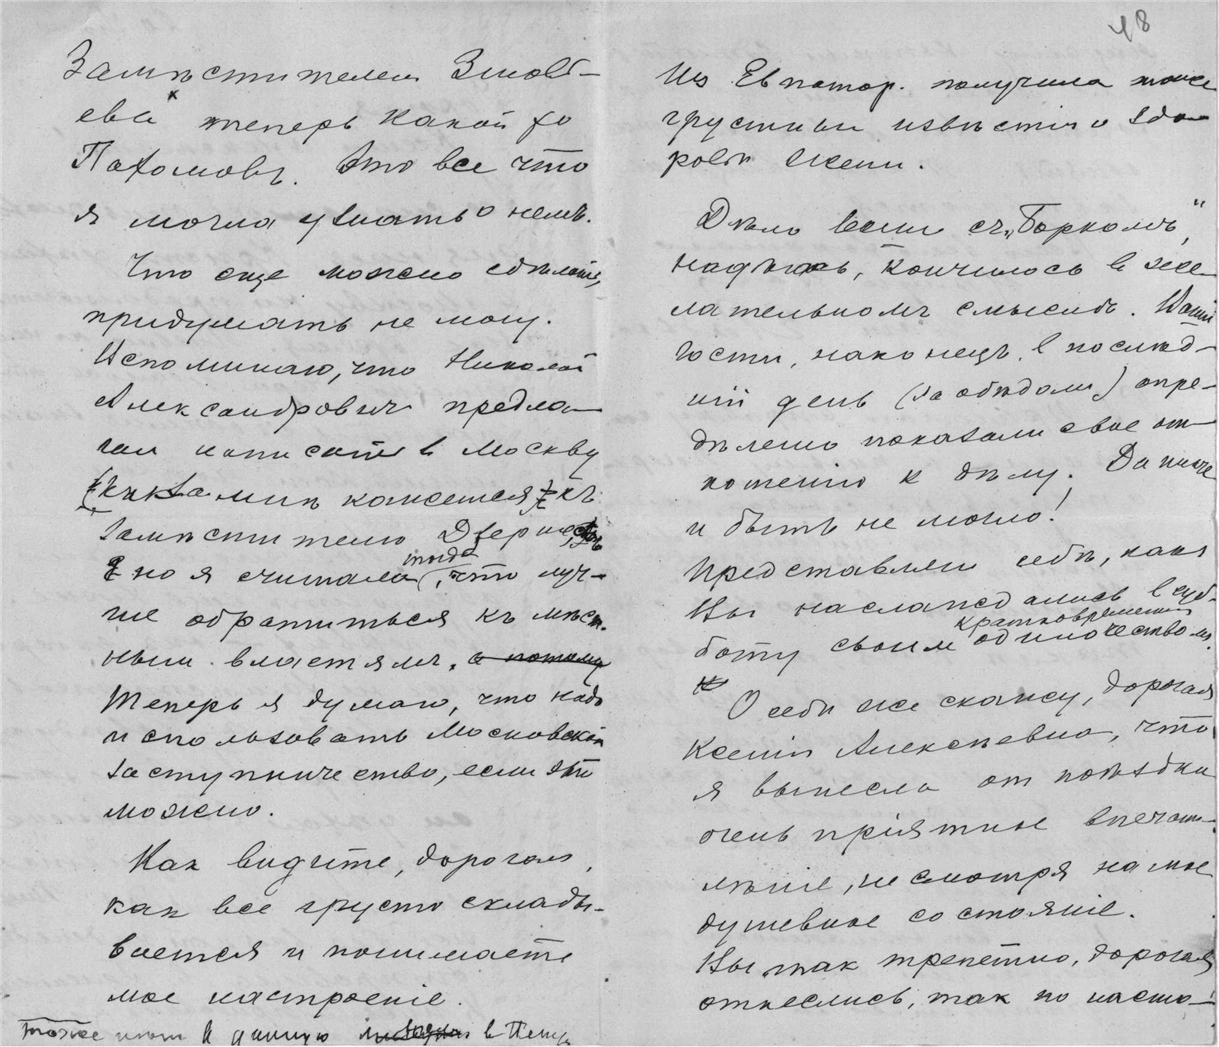 18
Замѣстителем Зиновь-
ева теперь какой то
Пахомовъ. Это все что
я могла узнать о немъ.
Что еще можно сдѣлать,
придумать не могу.
Вспоминаю, что Николай
Александрович предла-
гал написать в Москву
как мнѣ кажется къ
замѣстителю
но я считала тогда, что луч-
ше обратиться къ мѣст-
ным властям, а потому
Теперь я думаю, что надо
использовать Московское
заступничество, если это
можно.
Как видите, дорогая,
как все грустно склады-
вается и понимаете
мое настроеніе.
тоже нит в
Из Евпатор. получила тоже
грустныи извѣстія о здо-
ровьи Жени.
Дѣло Ваши съ „Горкомъ",
надѣюсь, кончилось в же-
лательномъ смыслѣ. Ваши
гости, наконецъ, в послѣд-
ній день (за обѣдом) опре-
дѣленно показали свое от-
ношеніе к дѣлу. Да иначе
и быть не могло!
Представляю себѣ, как
Вы наслаждались в суб-
боту своим кратковременным одиночеством.
О себѣ же скажу, дорогая
Ксенія Алексѣевна, что
я вынесла от поѣздки
очень пріятное впечат-
лѣніе, несмотря на мое
душевное состояніе.
Вы так трепетно, дорогая
отнеслись, так по насто-